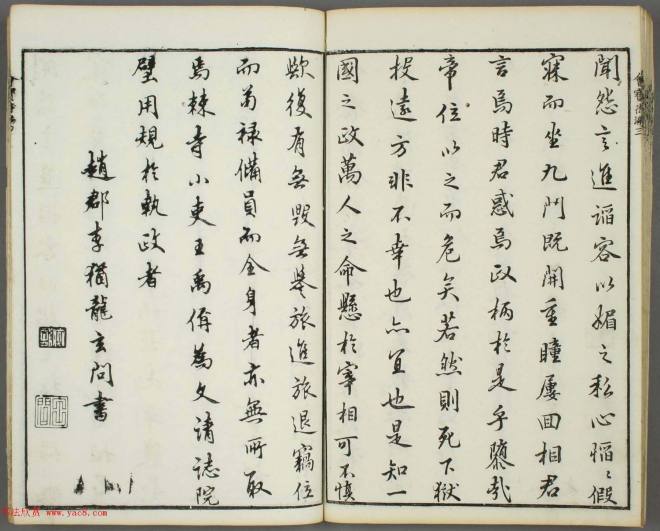 聞怨言進謟容以媚之私心慆〻假
寐而坐九門既開重瞳屢回相君
言焉時君惑焉政柄於是乎隳哉
帝位以之而危矣若然則死下獄
投遠方非不幸也亦宜也是知一
國之政萬人之命懸於宰相可不慎
歟復有無毀無譽旅進旅退竊位
而苟祿備員而全身者亦無所取
焉棘寺小吏王禹偁為文請誌院
壁用規於執政者
趙郡李猶龍玄問書
法欣赏 www.yac8.com